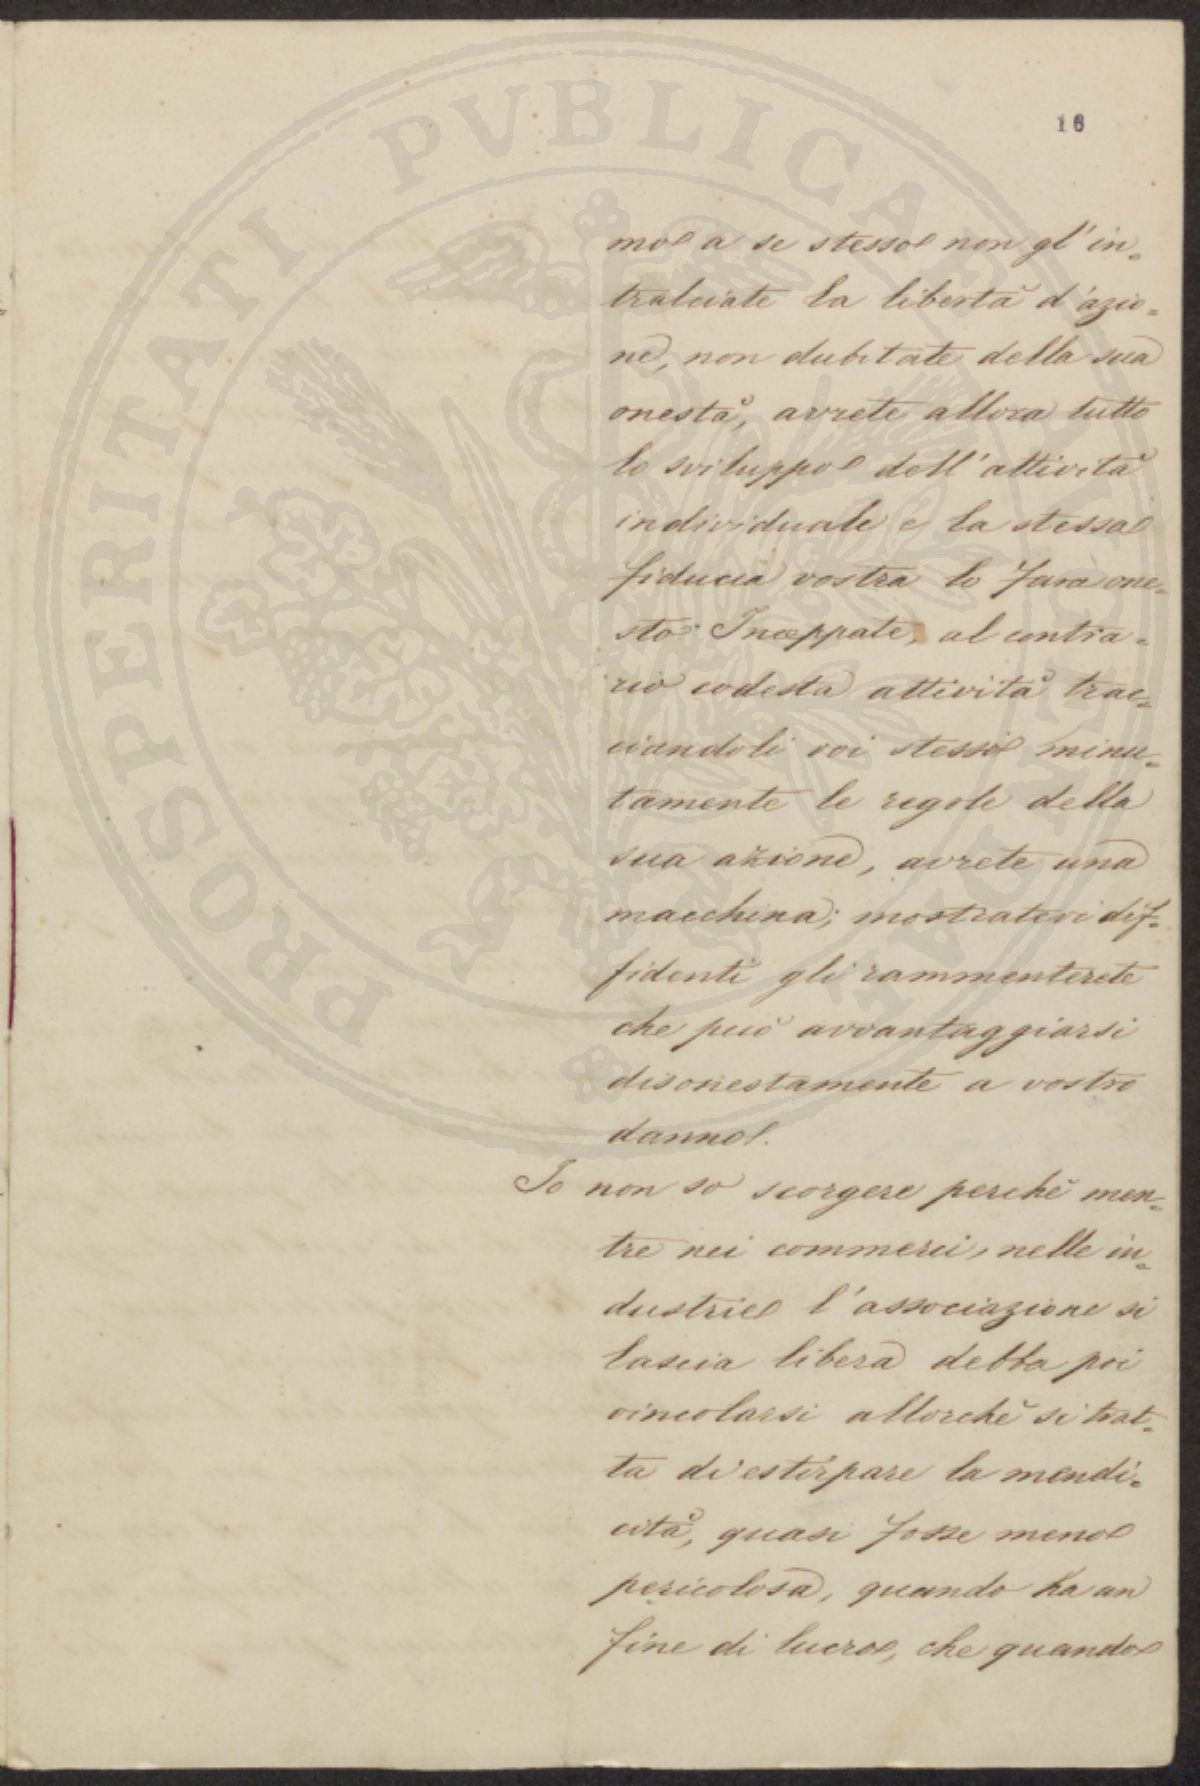 16
mo a se stesso non gl'in=
tralciate la libertà d'azio=
ne, non dubitate della sua
onestà, avrete allora tutto
lo sviluppo dell'attività
individuale e la stessa
fiducia vostra lo farà one=
sto. Inceppate, al contra=
rio codesta attività trac=
ciandoli voi stessi minu=
tamente le regole della
sua azione, avrete una
macchina; mostratevi dif=
fidenti gli rammenterete
che può avvantaggiarsi
disonestamente a vostro
danno.
Io non so scorgere perchè men=
tre nei commerci, nelle in=
dustrie l'associazione si
lascia libera debba poi
vincolarsi allorchè si trat=
ta di estirpare la mendi=
cità, quasi fosse meno
pericolosa, quando ha un
fine di lucro, che quando
PROSPERITATI PVBLICAE AVGENDAE